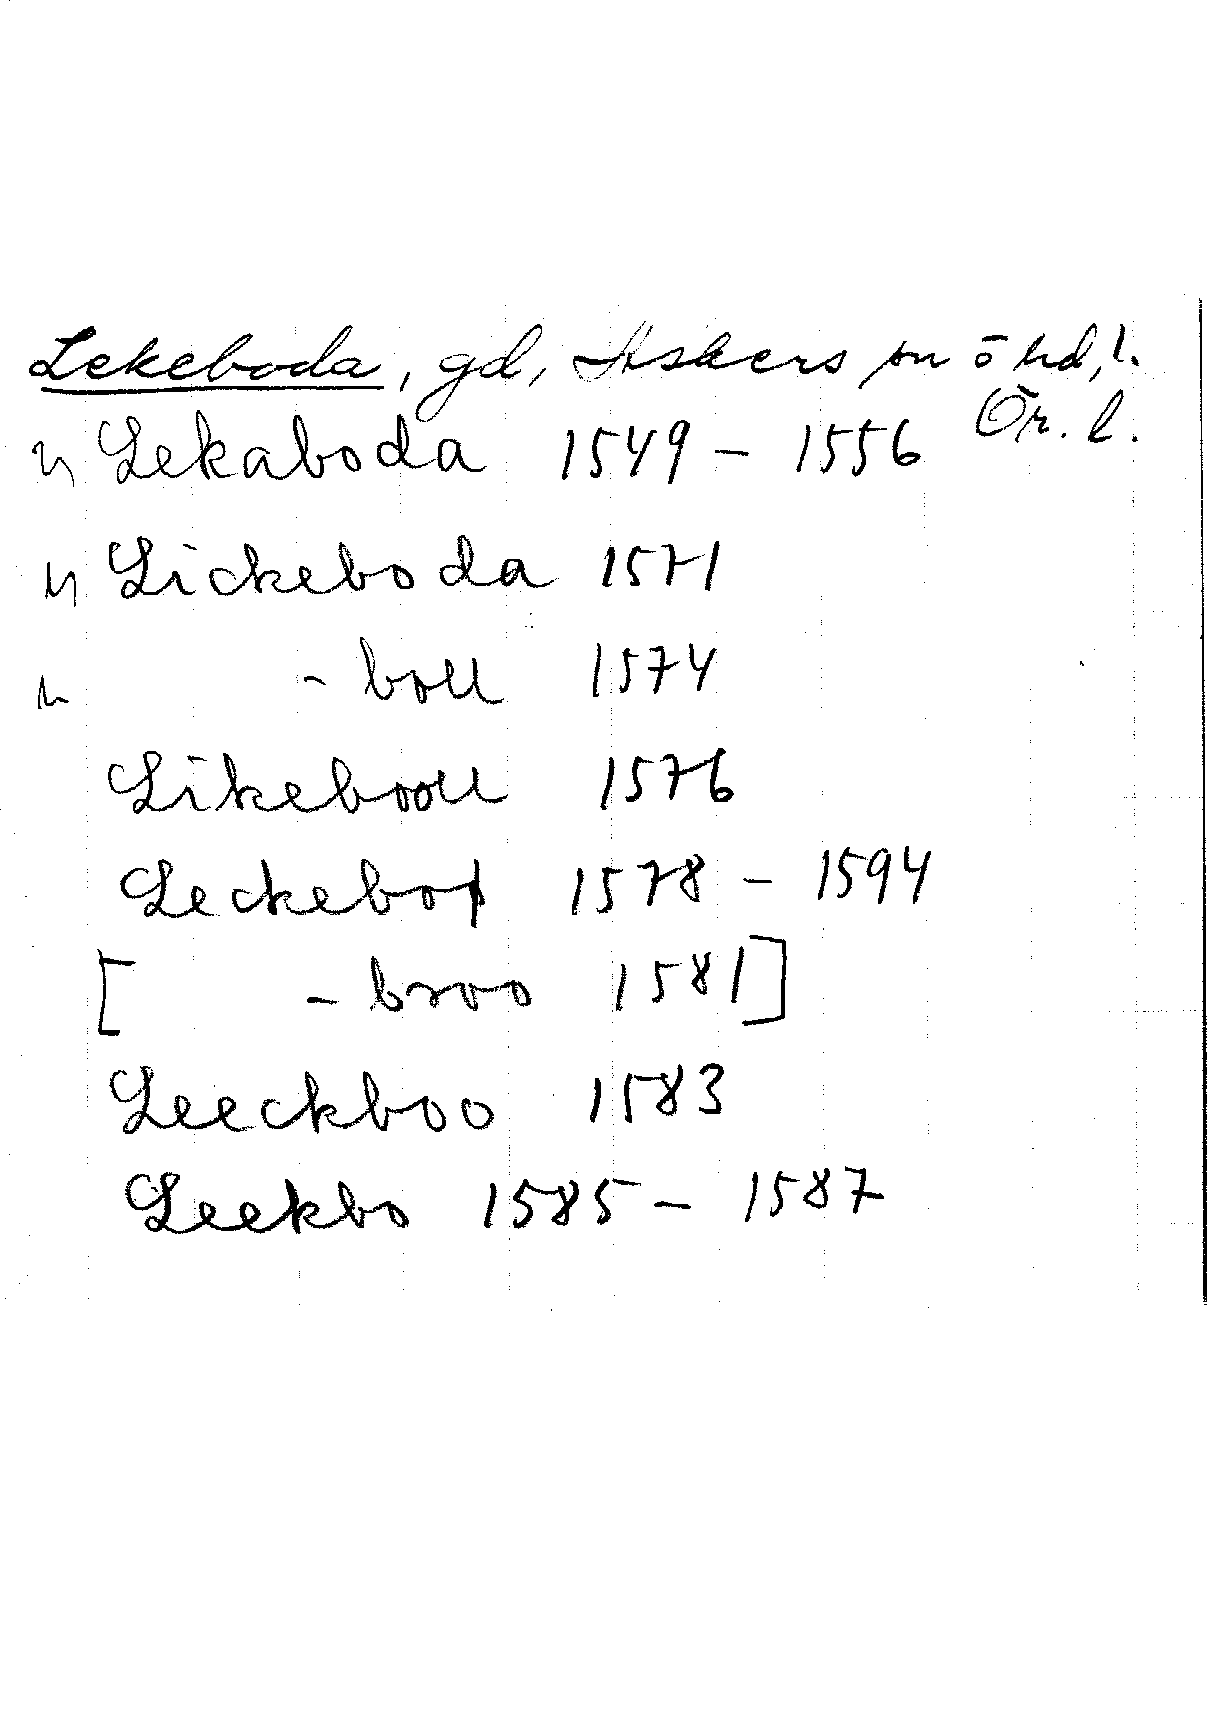 Lekeboda, gd, Askers sn o hd, l.
Ör. l.
Lekaboda 1549 – 1556
Lickeboda 1571
- boll 1574
Likebooll 1576
Leckebod 1578 – 1594
[ - broo 1581]
Leeckboo 1583
Leekbo 1585 – 1587